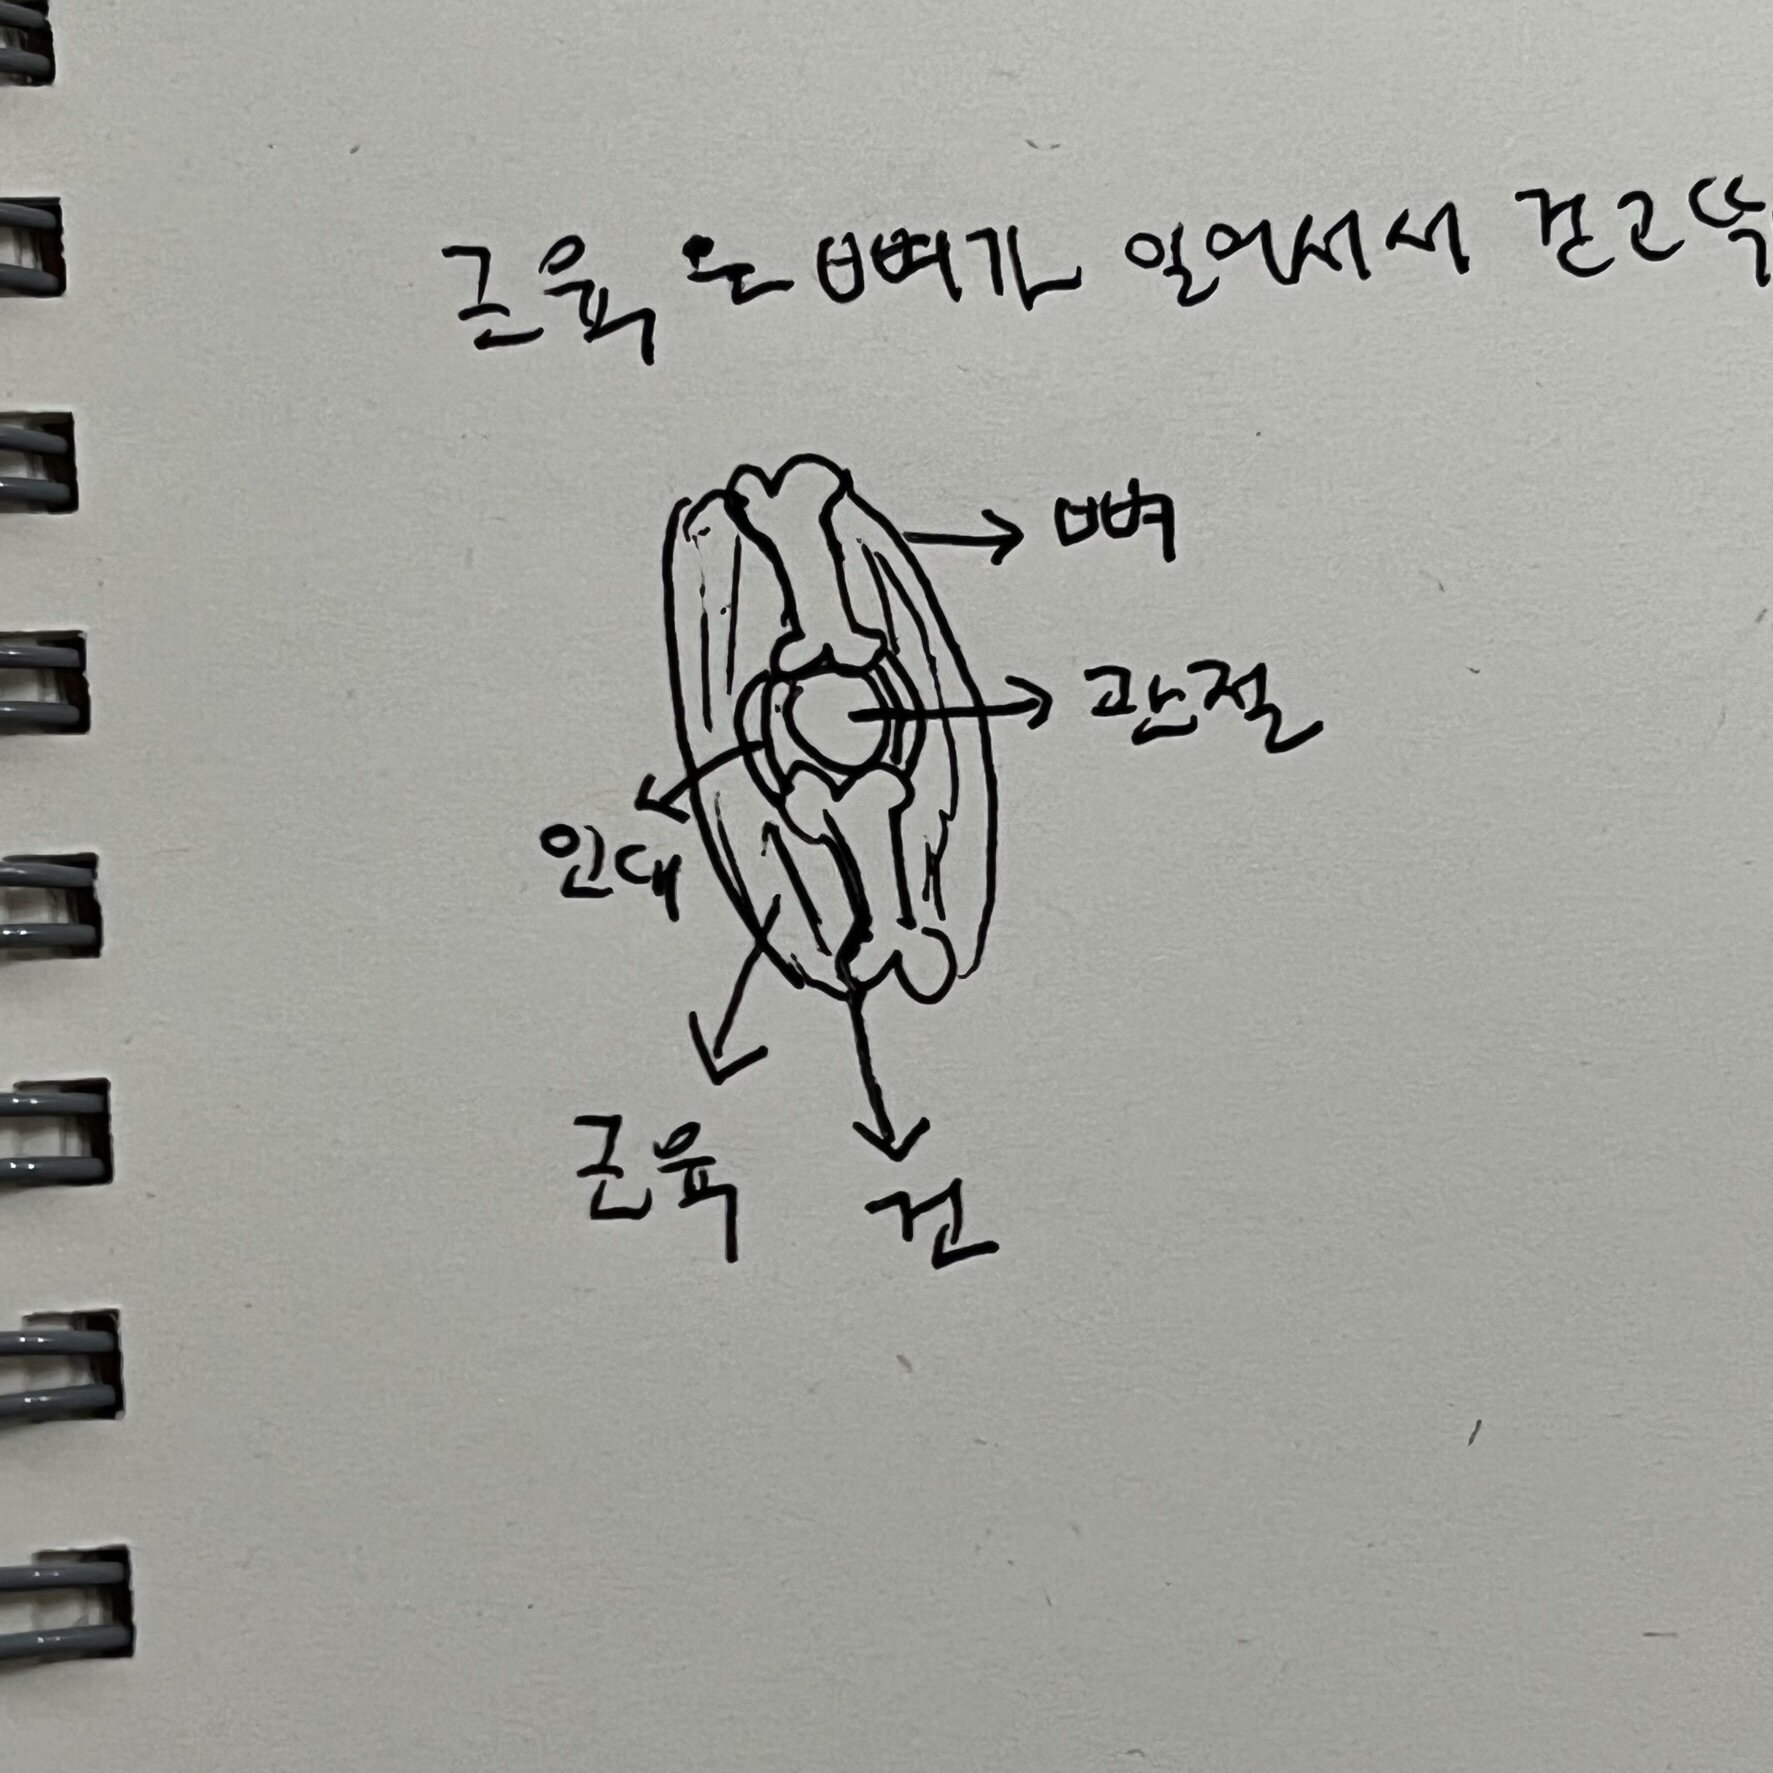 근육은 뼈가 일어서서 걷고
뼈
관절
인대
근육
건